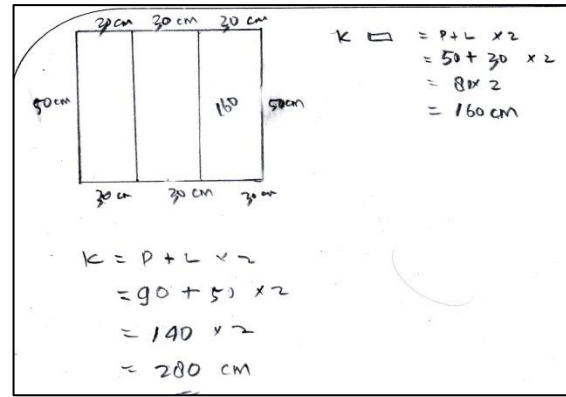 30 cm 30 cm 30 cm
50 cm 160 50 cm
30 cm 30 cm 30 cm
K ▭ = P+L × 2
= 50 + 30 × 2
= 80 × 2
= 160 cm
K = P + L × 2
= 90 + 50 × 2
= 140 × 2
= 280 cm